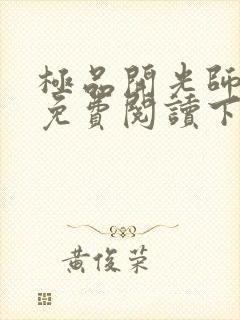 極品開光師
免費閱讀下
黃俊荣